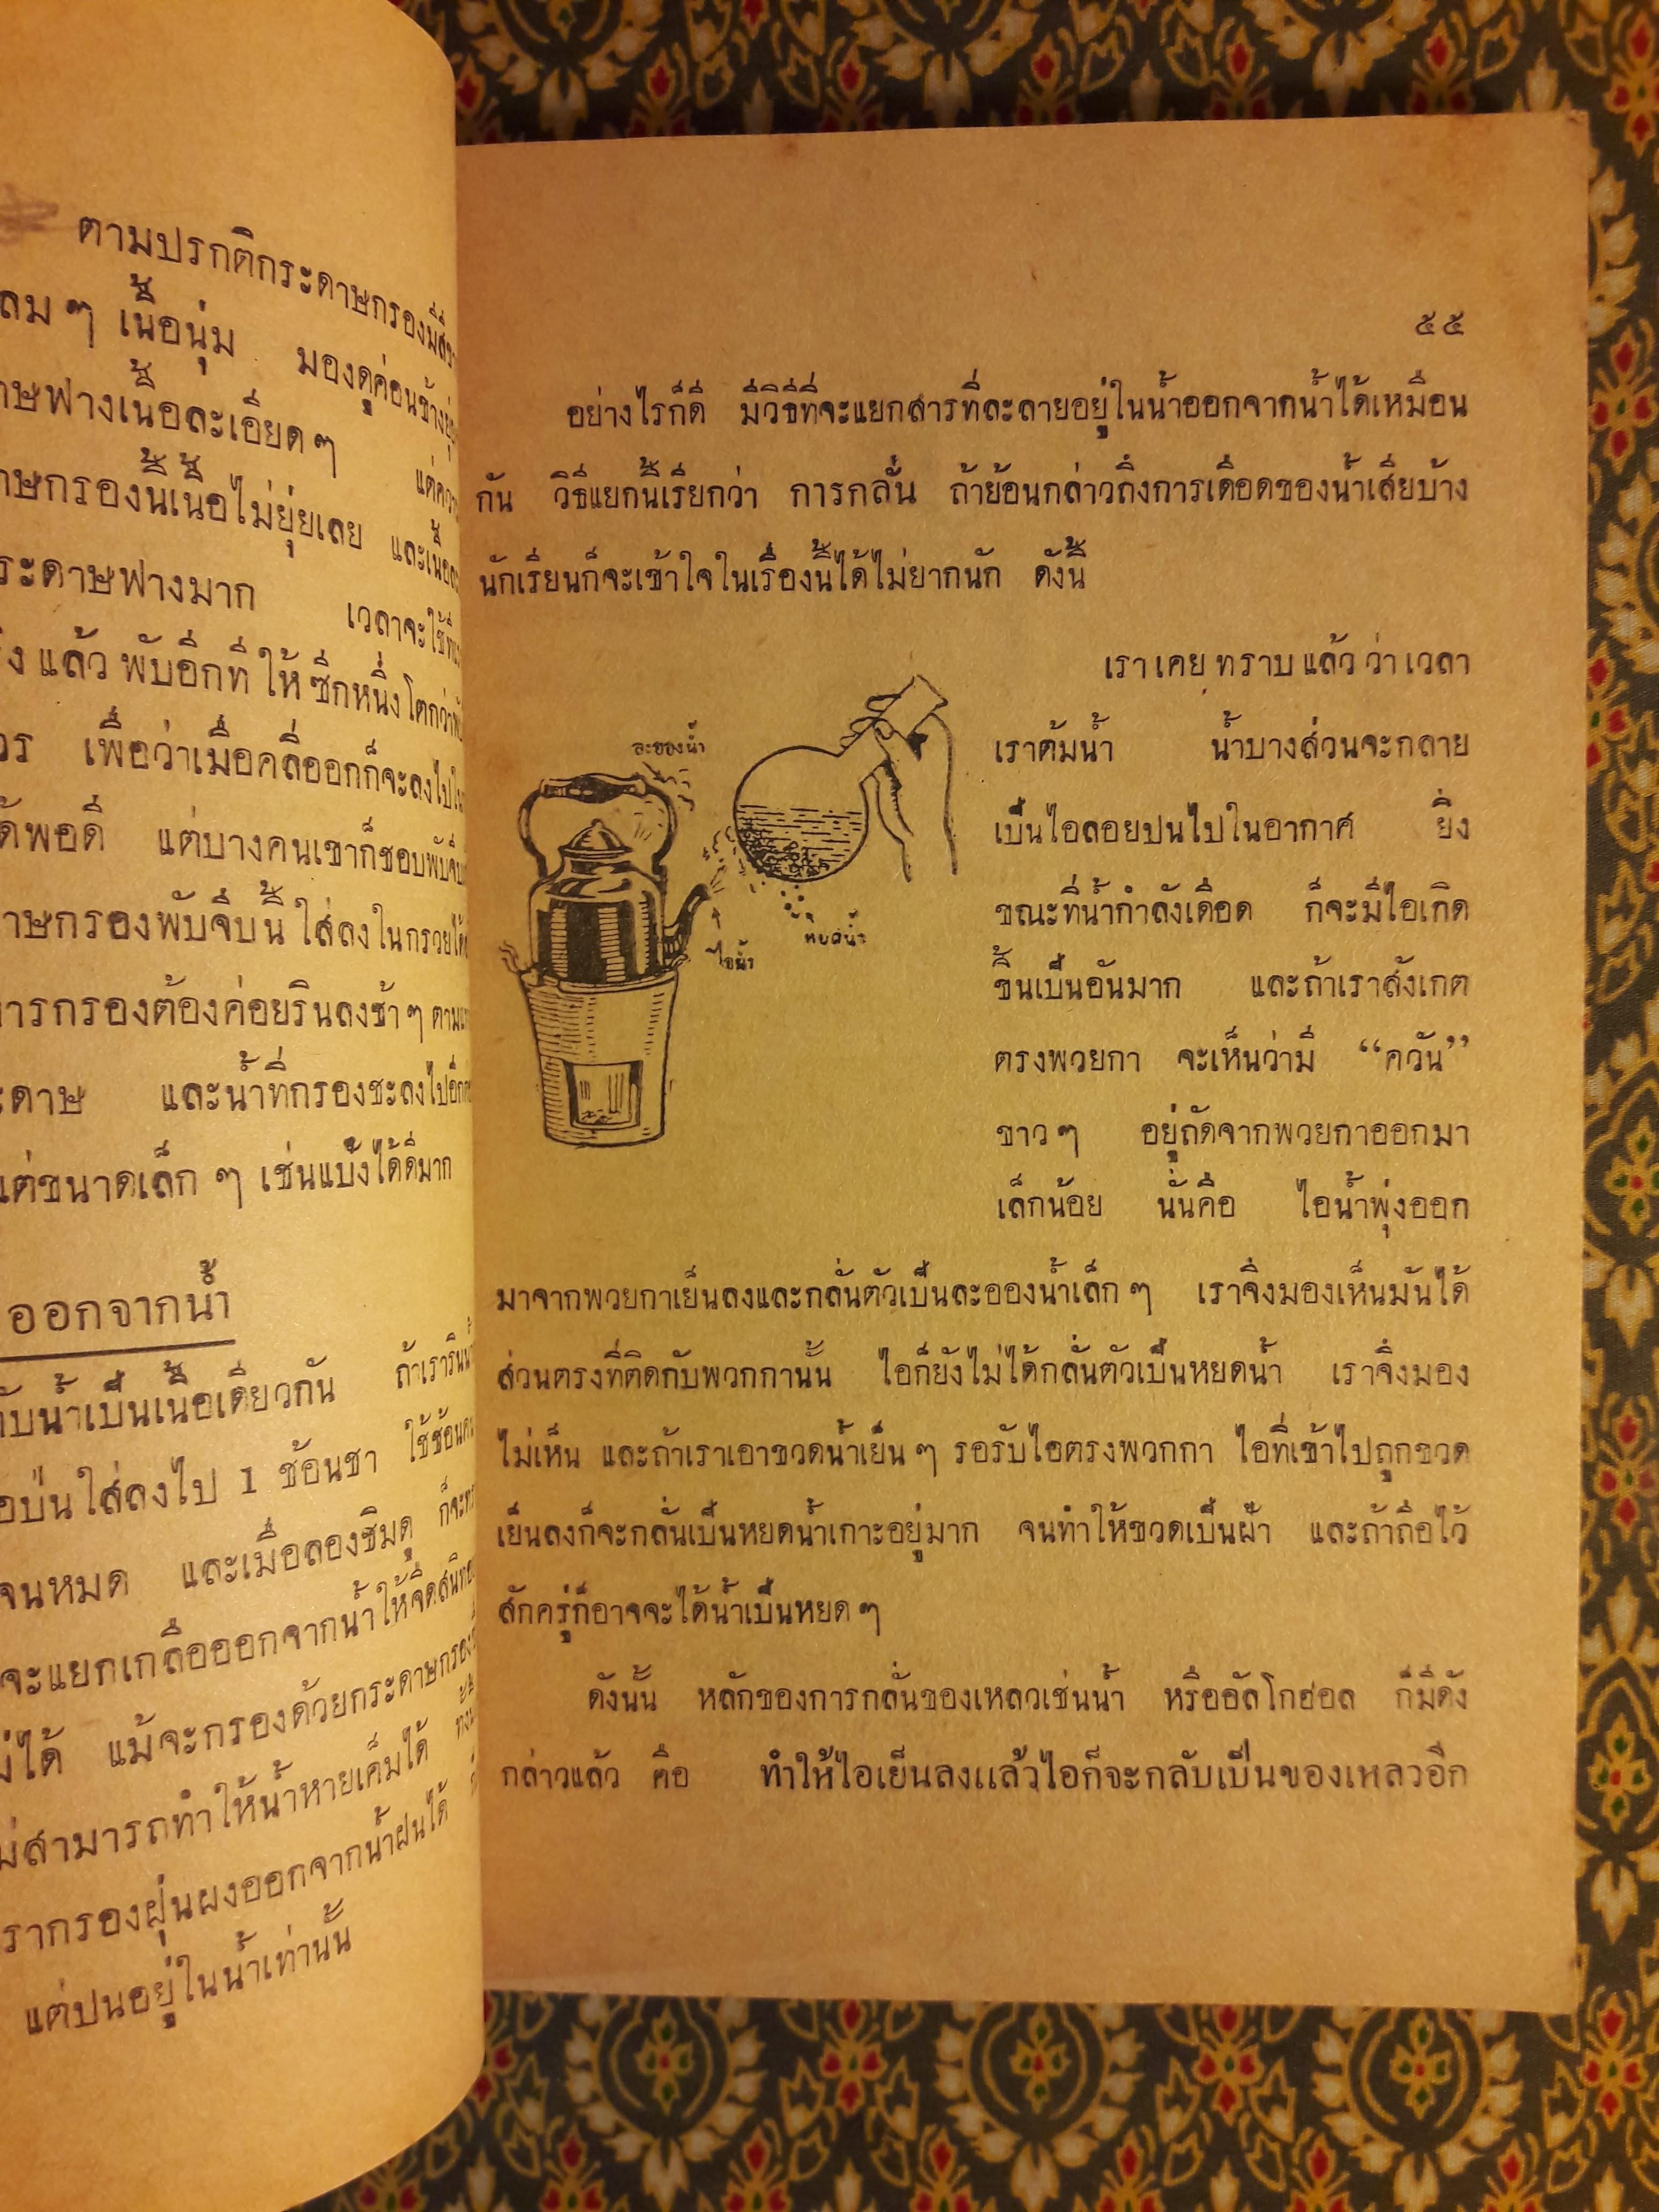 ตามปรกติกระดาษกรองมีสี
ลมๆ เนื้อนุ่ม มองดูค่อนข้าง
ฟางเนื้อละเอียดๆ
กรองนี้เนื้อไม่ยุ่ยเลย และเนื้อ
กระดาษฟางมาก เวลาจะใช้
แล้วพับอีกที ให้ซีกหนึ่งโตกว่า
เพื่อว่าเมื่อคลี่ออกก็จะลงไปใน
พอดี แต่บางคนเขาก็ชอบพับ
กรองพับจีบนี้ ใส่ลงในกรวย
การกรองต้องค่อยรินลงช้าๆ
และน้ำที่กรองจะลงไป
แต่ขนาดเล็กๆ เช่นแป้งได้ดีมาก
ออกจากน้ำ
น้ำเป็นเนื้อเดียวกัน ถ้าเรา
ป่นใส่ลงไป 1 ช้อนชา
จนหมด และเมื่อลองชิมดู
จะแยกเกลือออกจากน้ำให้จืดสนิท
แม้จะกรองด้วยกระดาษกรอง
สามารถทำให้น้ำหายเค็มได้
เรากรองฝุ่นผงออกจากน้ำฝนได้
แต่ปนอยู่ในน้ำเท่านั้น
๕๕
อย่างไรก็ดี มีวิธีที่จะแยกสารที่ละลายอยู่ในน้ำออกจากน้ำได้เหมือน
กัน วิธีแยกนี้เรียกว่า การกลั่น ถ้าย้อนกล่าวถึงการเดือดของน้ำเสียบ้าง
นักเรียนก็จะเข้าใจในเรื่องนี้ได้ไม่ยากนัก ดังนี้
เราเคยทราบแล้วว่าเวลา
เราต้มน้ำ น้ำบางส่วนจะกลาย
เป็นไอลอยปนไปในอากาศ ยิ่ง
ขณะที่น้ำกำลังเดือด ก็จะมีไอเกิด
ขึ้นเป็นอันมาก และถ้าเราสังเกต
ตรงพวยกา จะเห็นว่ามี “ควัน”
ขาวๆ อยู่ถัดจากพวยกาออกมา
เล็กน้อย นั่นคือ ไอน้ำพุ่งออก
ละอองน้ำ
ไอน้ำ
หยดน้ำ
มาจากพวยกาเย็นลงและกลั่นตัวเป็นละอองน้ำเล็กๆ เราจึงมองเห็นมันได้
ส่วนตรงที่ติดกับพวกกานั้น ไอก็ยังไม่ได้กลั่นตัวเป็นหยดน้ำ เราจึงมอง
ไม่เห็น และถ้าเราเอาขวดน้ำเย็นๆ รอรับไอตรงพวกกา ไอที่เข้าไปถูกขวด
เย็นลงก็จะกลั่นเป็นหยดน้ำเกาะอยู่มาก จนทำให้ขวดเป็นฝ้า และถ้าถือไว้
สักครู่ก็อาจจะได้น้ำเป็นหยดๆ
ดังนั้น หลักของการกลั่นของเหลวเช่นน้ำ หรืออัลโกฮอล ก็มีดัง
กล่าวแล้ว คือ ทำให้ไอเย็นลงแล้วไอก็จะกลับเป็นของเหลวอีก